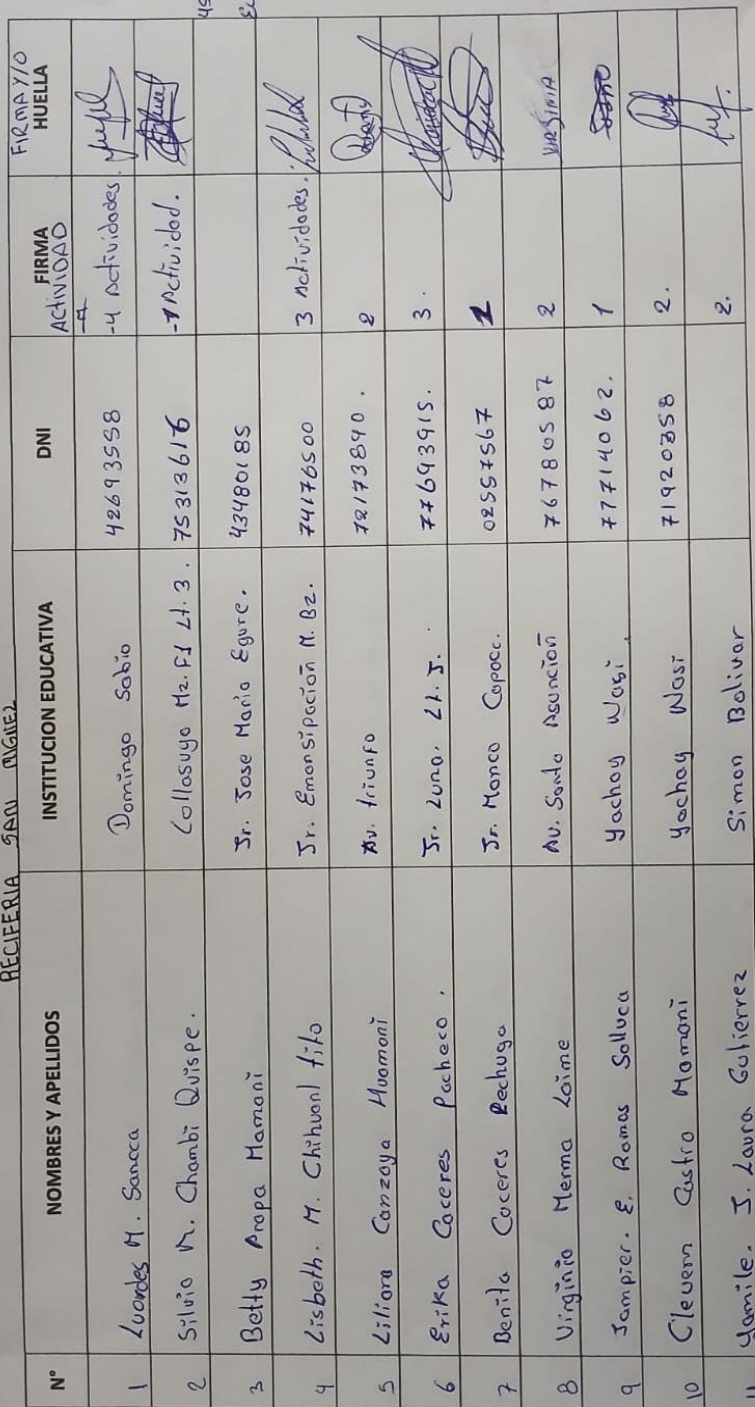 PECIFERIA SAN MIGUEZ
N° NOMBRES Y APELLIDOS INSTITUCION EDUCATIVA DNI FIRMA ACTIVIDAD FIRMA Y/O HUELLA
1 Luordes M. Sancca Domingo Sabio 42693558 -4 Actividades.
2 Silvia M. Chambi Quispe. Collasuyo Mz. F1 Lt. 3. 75313616 -1 Actividad.
3 Betty Aropa Mamani Jr. Jose Maria Egure. 43480185
4 Lisbeth. M. Chihuanl tito Jr. Emansipacion M. B2. 74176500 3 Actividades.
5 Liliana Canzaya Huamani Av. triunfo 72173840. 2
6 Erika Caceres Pacheco. Jr. Luna. Lt. J. 77693915. 3.
7 Benita Caceres Pechuga Jr. Manco Capacc. 02557567 1
8 Virginia Merma Laime Av. Santa Asuncion 76780587 2 VIRGINIA
9 Jampier. E. Ramas Salluca Yachay Wasi 77714062. 1
10 Clevern Castro Mamani Yachay Wasi 71920358 2.
11 Yamile. J. Laura Gutierrez Simon Bolivar 2.